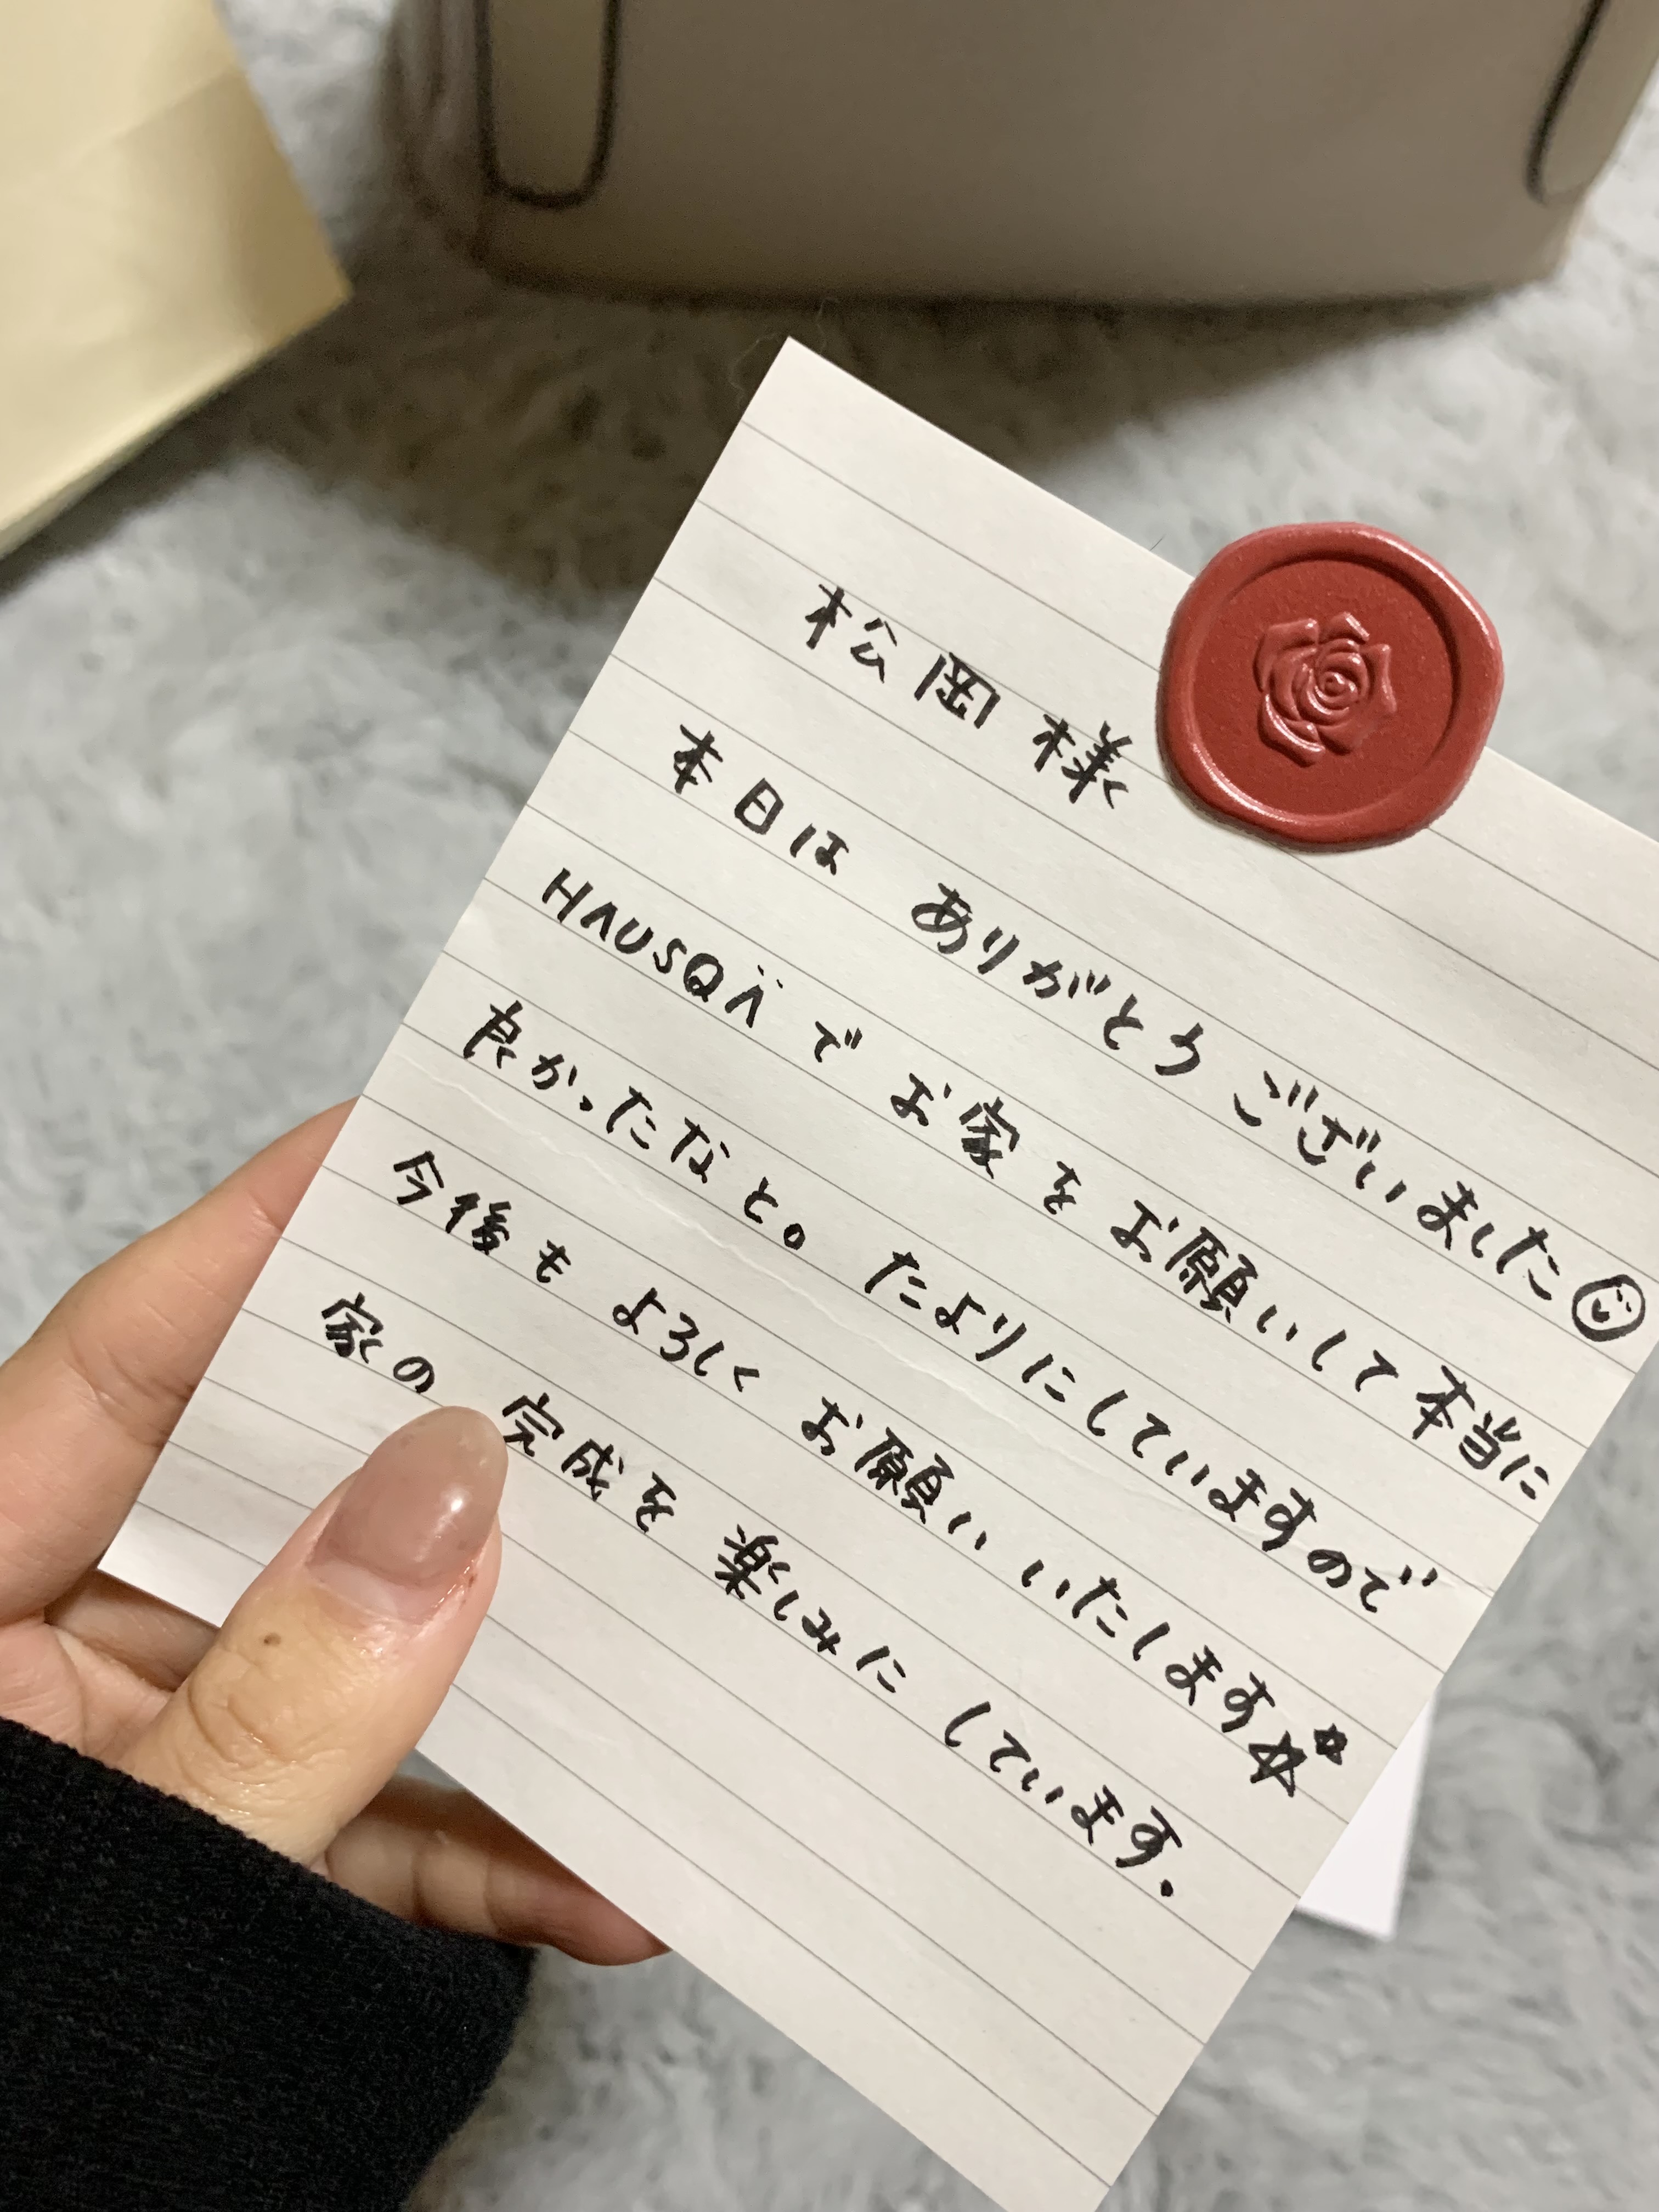 松岡 様
本日は ありがとう ございました☺
HAUSQÄ で お家を お願いして 本当に
良かったなと。たよりにしていますので
今後も よろしく お願い いたします☆
家の 完成を 楽しみに しています.